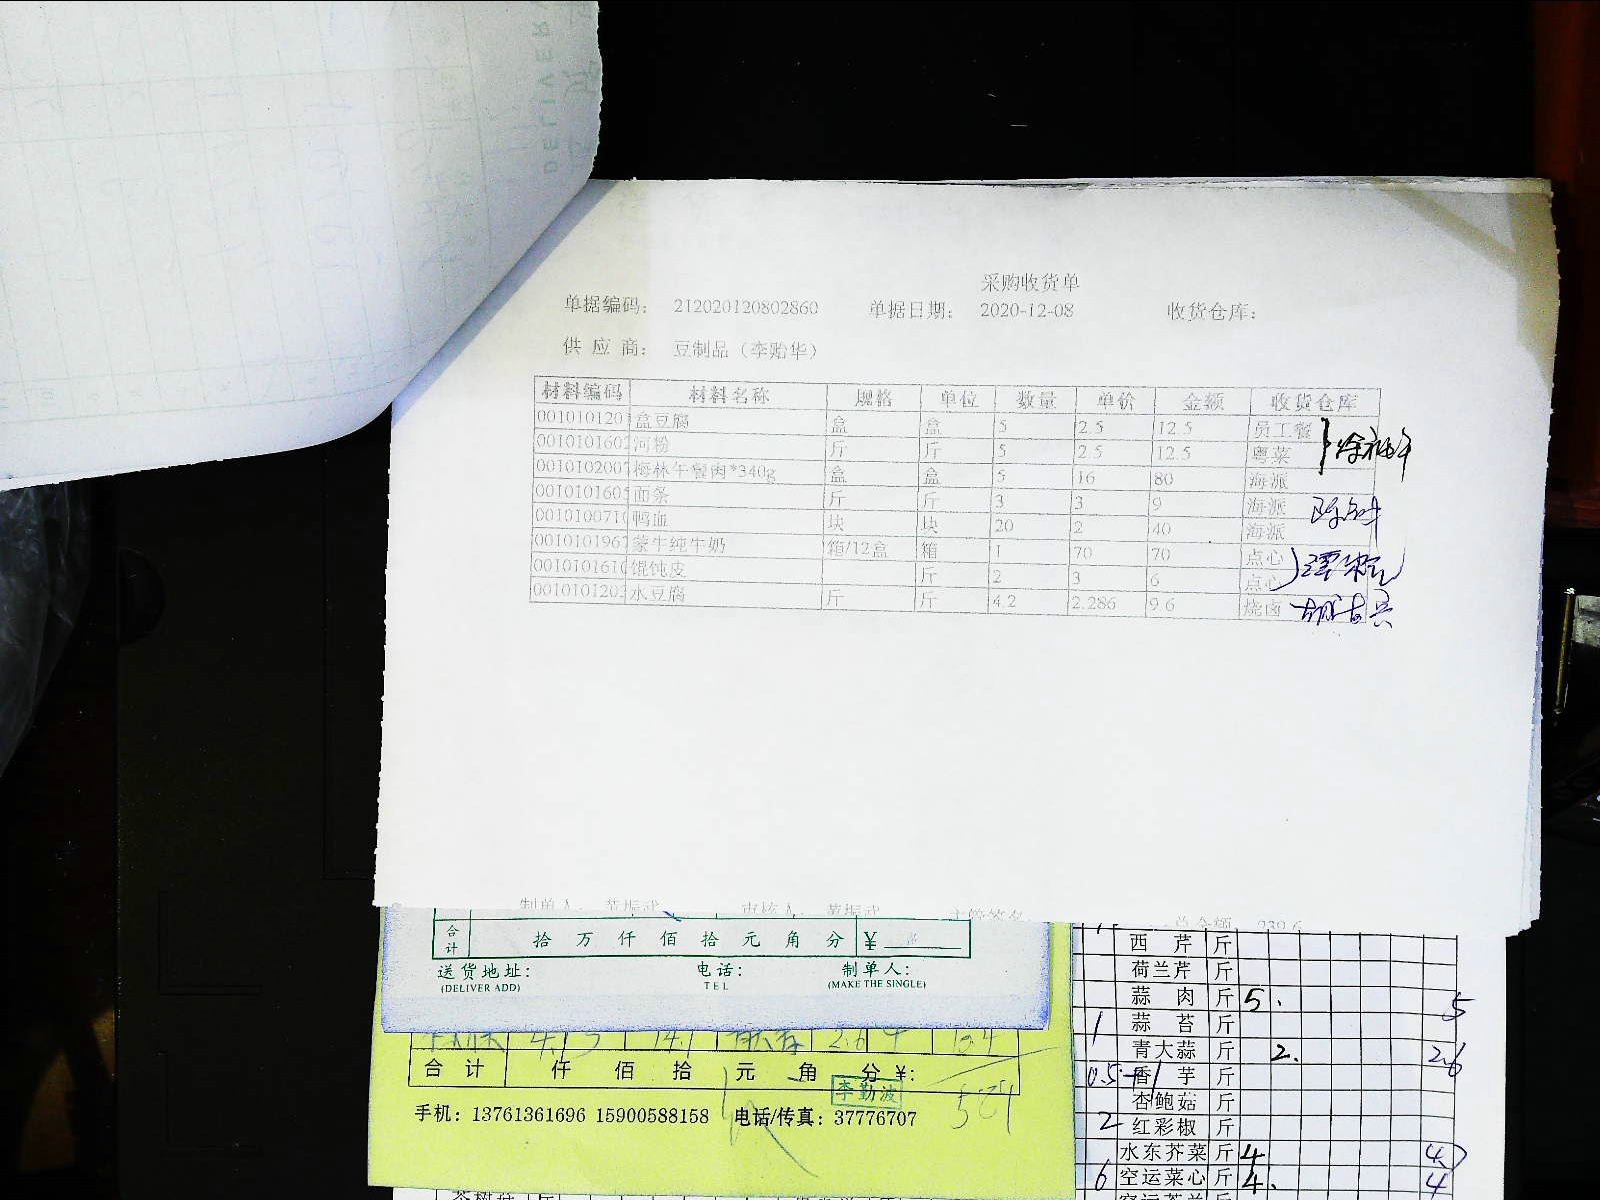 采购收货单
单据编码： 212020120802860 单据日期： 2020-12-08 收货仓库：
供 应 商： 豆制品（李贻华）
材料编码 材料名称 规格 单位 数量 单价 金额 收货仓库
001010120 盒豆腐 盒 盒 5 2.5 12.5 员工餐
0010101602 河粉 斤 斤 5 2.5 12.5 粤菜
0010102007 梅林午餐肉*340g 盒 盒 5 16 80 海派
0010101605 面条 斤 斤 3 3 9 海派
0010100710 鸭血 块 块 20 2 40 海派
0010101967 蒙牛纯牛奶 箱/12盒 箱 1 70 70 点心
0010101610 馄饨皮 斤 2 3 6 点心
0010101203 水豆腐 斤 斤 4.2 2.286 9.6 烧卤
合计 拾 万 仟 佰 拾 元 角 分 ¥
送货地址： 电话： 制单人：
(DELIVER ADD) TEL (MAKE THE SINGLE)
合 计 仟 佰 拾 元 角 分 ¥:
李勤波
手机：13761361696 15900588158 电话/传真：37776707
西 芹 斤
荷兰芹 斤
蒜 肉 斤 5. 5
1 蒜 苔 斤
青大蒜 斤 2. 2.6
香 芋 斤
杏鲍菇 斤
2 红彩椒 斤
水东芥菜 斤 4 4
6 空运菜心 斤 4. 4